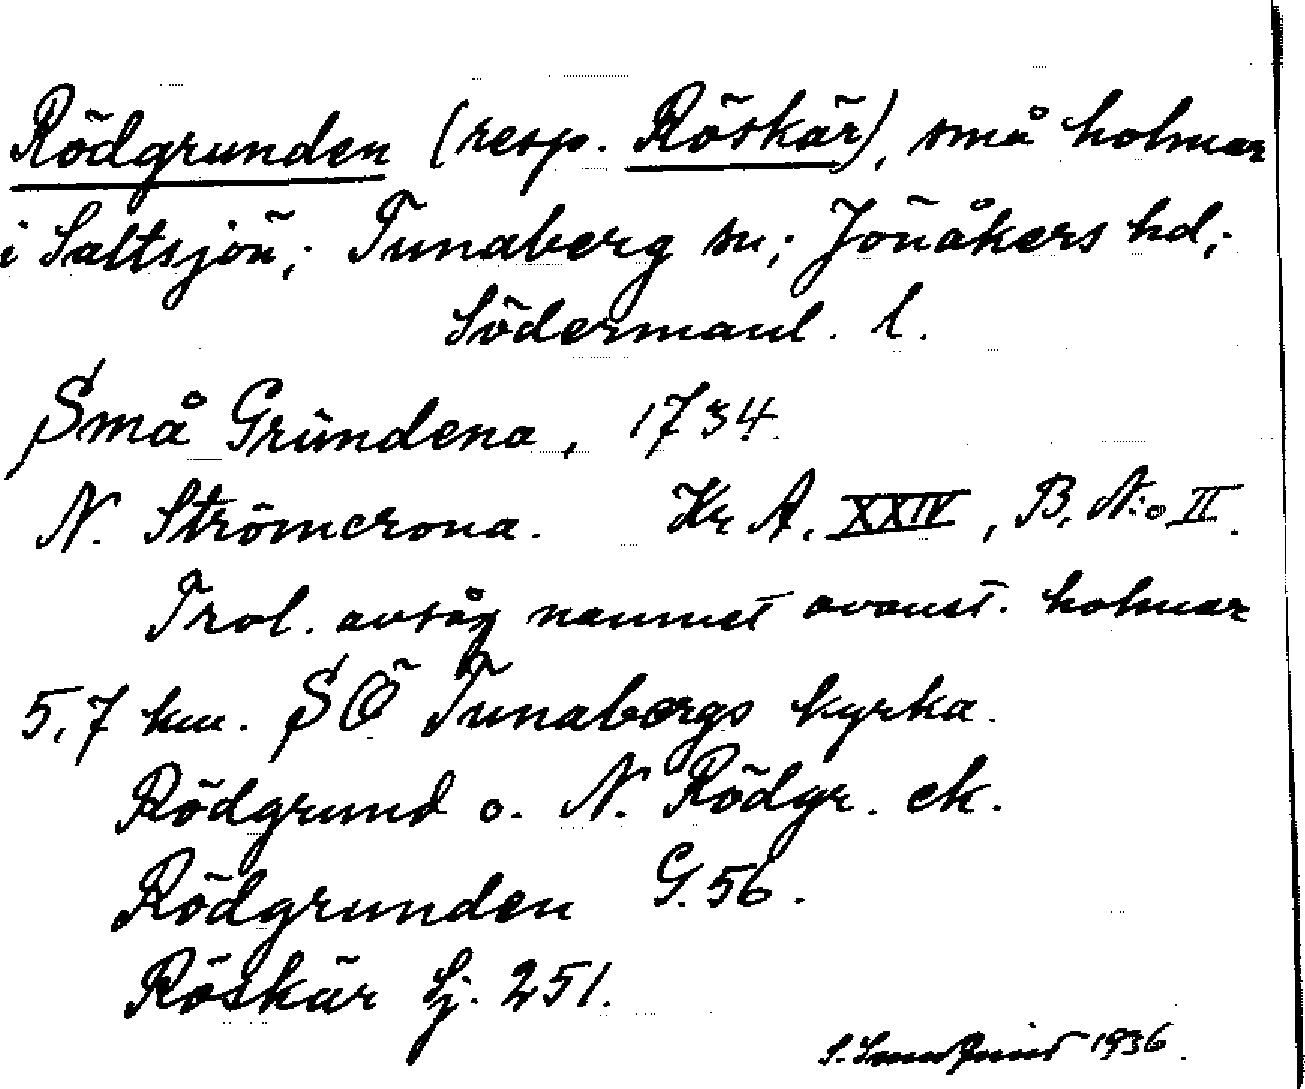 Rödgrunden (resp. Röskär), små holmar
i Saltsjön; Tunaberg sn; Jönåkers hd;
Södermanl. l.
Små Grundena, 1734.
N. Strömcrona. Kr A. XXIV, B. N:o II.
Trol. avsåg namnet ovanst. holmar
5,7 km. SÖ Tunabergs kyrka.
Rödgrund o. N. Rödgr. ek.
Rödgrunden G. 56.
Röskär Sj. 251.
S. 1936.